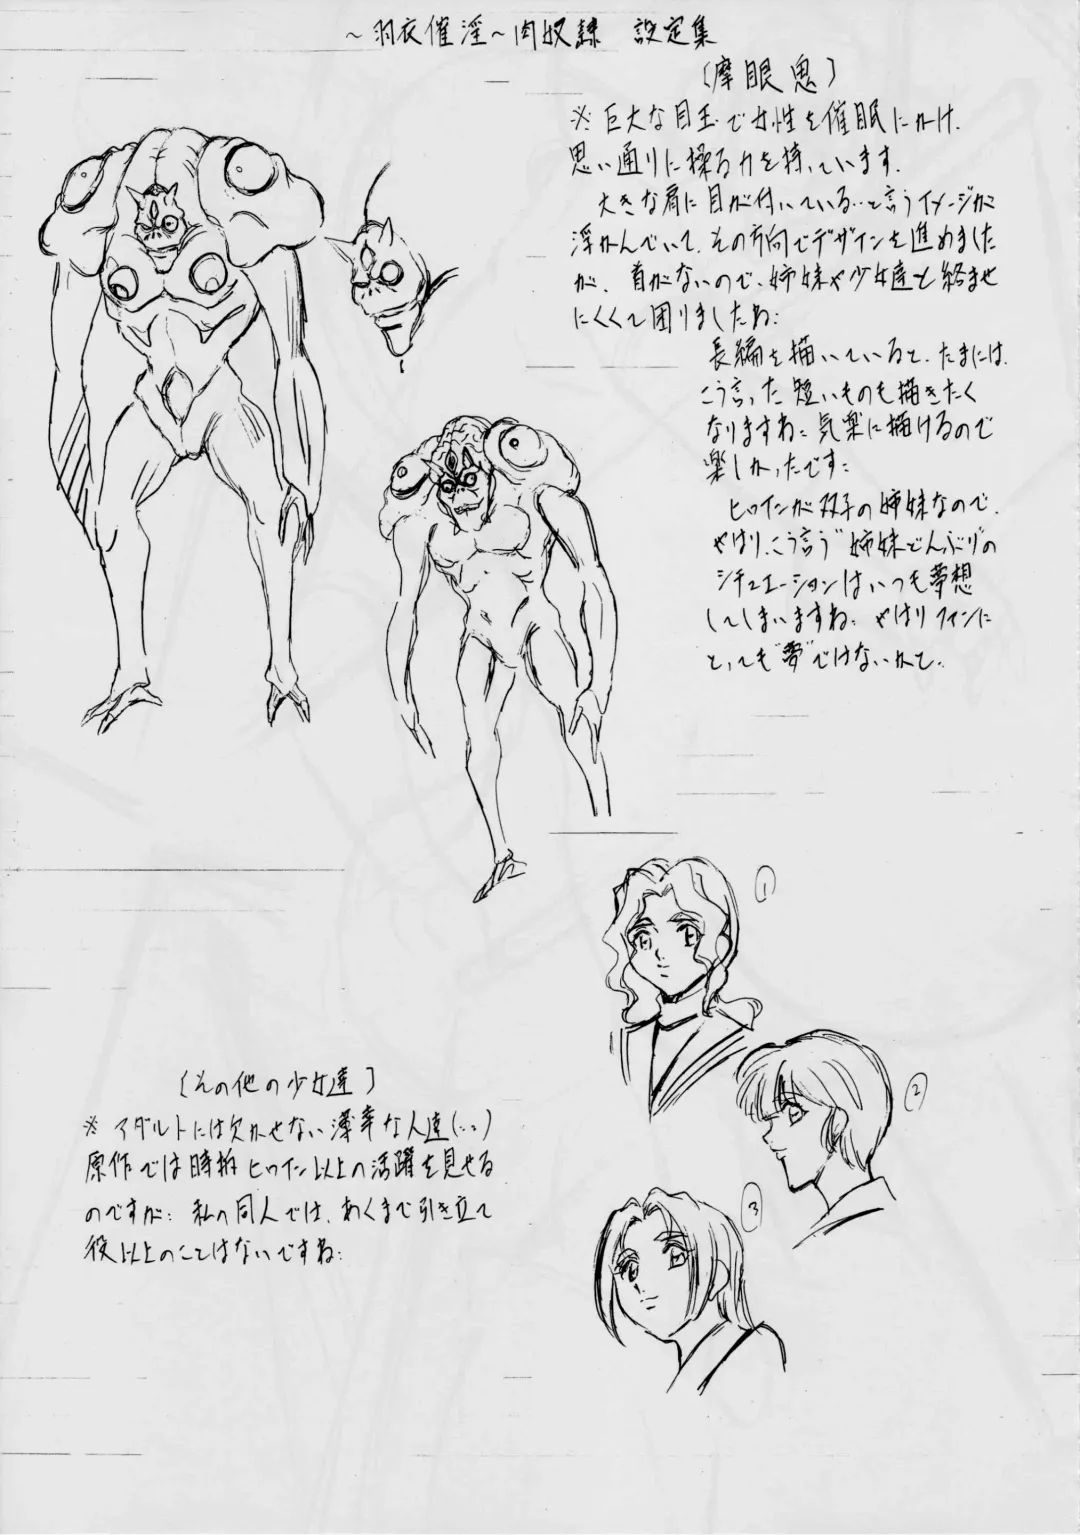 ~羽衣催淫~肉奴隷 設定集
(摩眼鬼)
※巨大な目玉で女性を催眠にかけ、
思い通りに操る力を持っています。
大きな肩に目が付いている…と言うイメージが
浮かんでいて、その方向でデザインを進めました
が、首がないので、姉妹や少女達と絡ませ
にくくて困りましたね:
長編を描いていると、たまには、
こう言った短いものも描きたく
なりますね:気楽に描けるので
楽しかったです:
ヒロインが双子の姉妹なので、
やはり、こう言う"姉妹どんぶり"の
シチュエーションはいつも夢想
してしまいますね:やはりファンに
とっても"夢"ではないかと…
①
②
③
(その他の少女達)
※アダルトには欠かせない薄幸な人達(…)
原作では時折ヒロイン以上の活躍を見せる
のですが:私の同人では、あくまで引き立て
役以上のことはないですね: